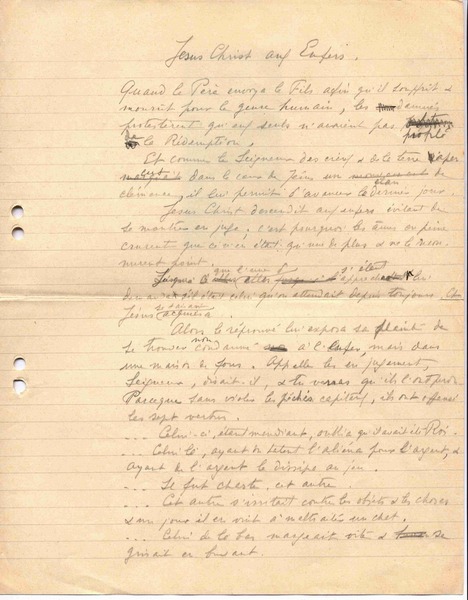 Jesus Christ aux Enfers.
Quand le Père envoya le Fils afin qu'il souffrit &
mourut pour le genre humain, les damnés
protestèrent qu'eux seuls n'avaient pas
profité
de la Rédemption.
Et comme le Seigneur des cieux & de la terre
dans le cœur de Jésus un
élan
clémence, il lui permit d'avancer le dernier jour.
Jésus Christ descendit aux enfers évitant de
se montrer en juge. C'est pourquoi les âmes en peine
crurent que ce n'en était qu'un de plus & ne le recon-
nurent point.
que l'une s'étant
approchant lui
était celui qu'on attendait depuis toujours. Et
Jésus acquiesça.
Alors le réprouvé lui exposa sa plainte de
se trouver non condamné à l'Enfer, mais dans
une maison de fous. Appelle les en jugement,
Seigneur, disait-il, & tu verras qu'ils l'ont
Parce que sans violer les péchés capitaux, ils ont offensé
les sept vertus.
... Celui-ci, étant mendiant, oublia qu'il avait été Roi.
... Celui là, ayant du talent l'aliéna pour l'argent, &
ayant de l'argent le dissipa au jeu.
... Se fut chaste, cet autre.
... Cet autre s'irritait contre les objets & les choses
& un jour il en vint à maltraiter un chat.
... Celui de là bas mangeait vite & se
grisait en buvant.